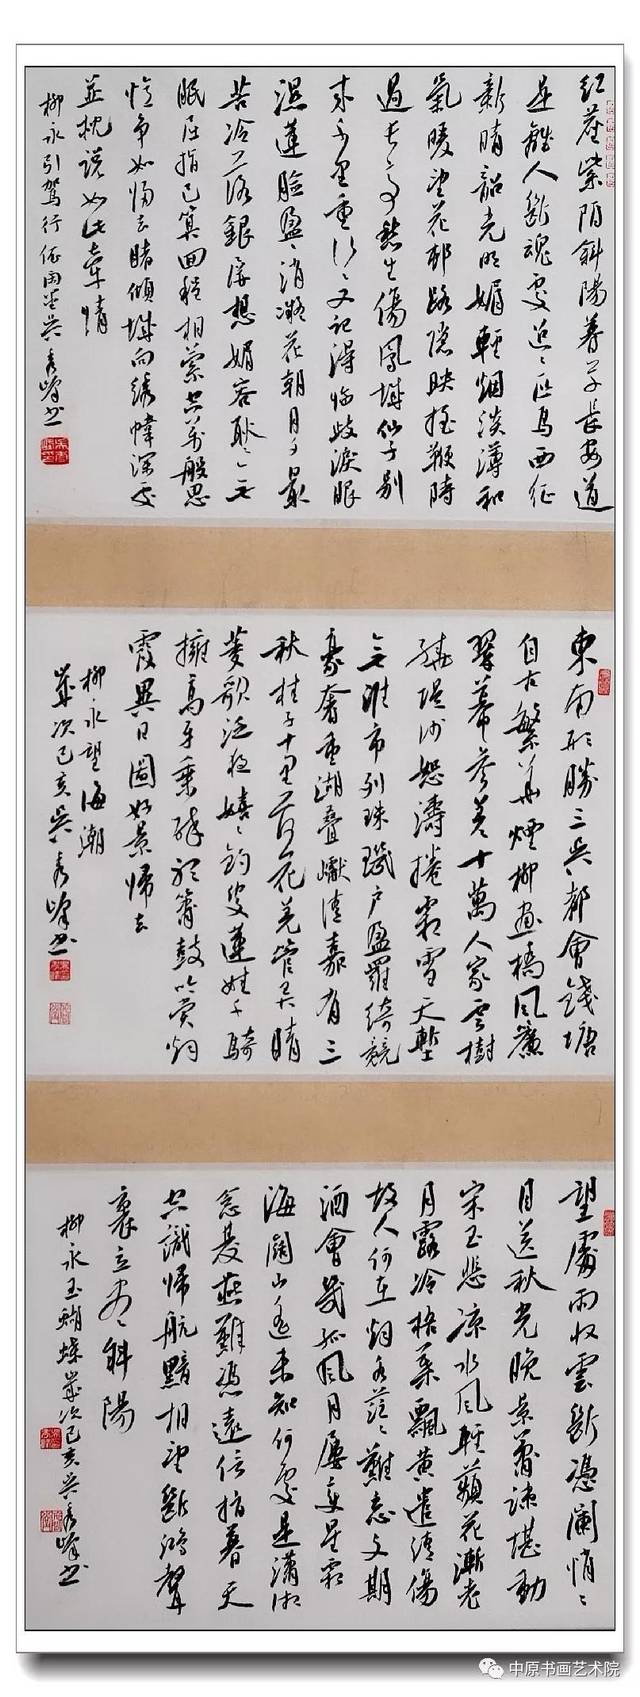 红塵紫陌斜陽暮草長安道
是離人斷魂處迢〻匹馬西征
新晴韶光明媚輕烟淡薄和
氣暖望花邨路隱映摇鞭時
過長亭愁生傷鳳城仙子别
来千里重行〻又記得临歧淚眼
濕蓮臉盈〻消凝花朝月夕最
苦冷落銀屏想媚容耿〻無
眠屈指已算回程相縈空萬般思
憶争如归去睹傾城向绣幃深處
並枕说如此牵情
柳永引駕行 吴秀峰书
東南形勝三吴都會錢塘
自古繁華煙柳画橋風簾
翠幕參差十萬人家雲樹
繞堤沙怒濤捲霜雪天塹
無涯市列珠璣户盈羅綺競
豪奢重湖疊巘清嘉有三
秋桂子十里荷花羌管弄晴
菱歌泛夜嬉〻釣叟蓮娃千騎
擁高牙乘醉聽簫鼓吟賞烟
霞異日圖好景歸去
柳永望海潮
歲次己亥吴秀峰书
望處雨收雲斷憑闌悄〻
目送秋光晚景蕭疏堪動
宋玉悲凉水風輕蘋花漸老
月露冷梧葉飄黄遣情傷
故人何在烟水茫〻難忘文期
酒會幾孤風月屢變星霜
海闊山遥未知何處是瀟湘
念雙燕難憑遠信指暮天
空識歸航黯相望斷鴻聲
裏立尽斜陽
柳永玉蝴蝶歲次己亥吴秀峰书
中原书画艺术院